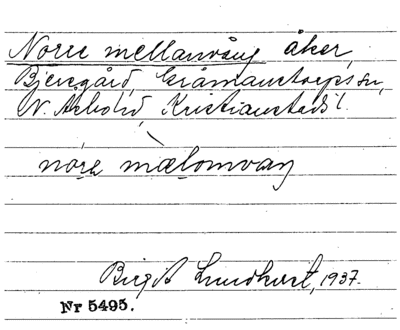 Norre mellanvång åker,
Bjersgård, Gråmanstorps sn,
N. Åsbo hd, Kristianstads l.
nórə mælomvaŋ
Birgit Lundkvist, 1937.
Nr 5495.